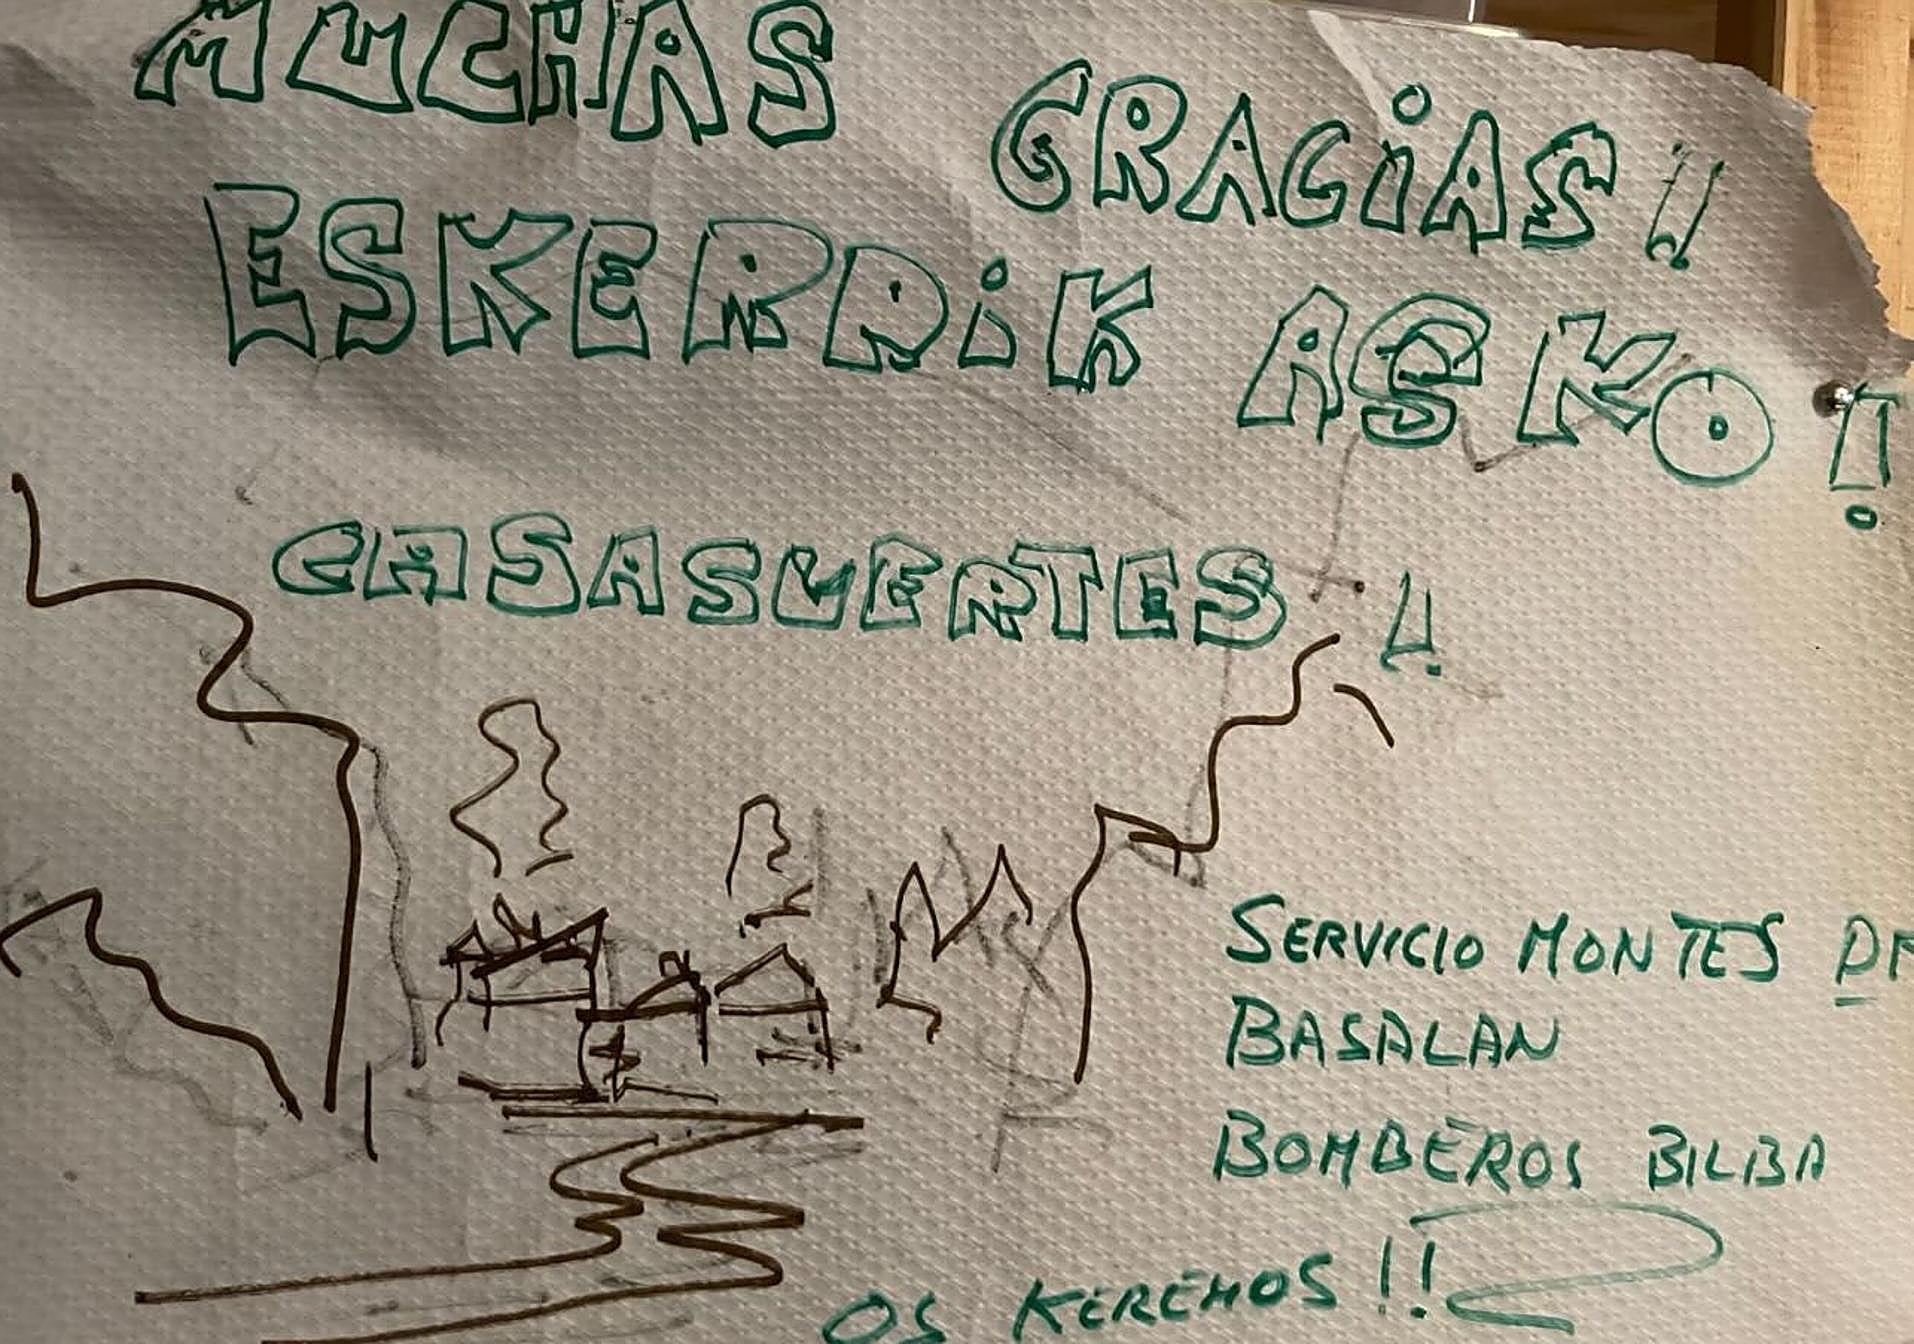 MUCHAS GRACIAS!!
ESKERRIK ASKO!
CASASUERTES!!
SERVICIO MONTES DE
BASALAN
BOMBEROS BILBA
OS KEREMOS!!